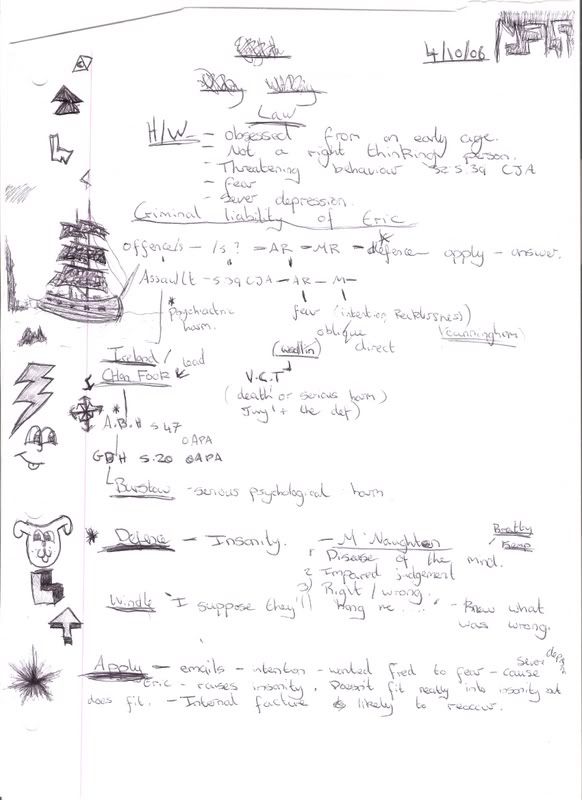 4/10/06
Law
H/W - obsessed from an early age.
- Not a right thinking person.
- Threatening behaviour S2 S.39 CJA
- fear
- Sever depression.
Criminal liability of Eric
offence/s - /s? = AR - MR - defence - apply - answer.
Assault - S39 CJA - AR - M -
* Psychiactric harm.
fear (intention, Recklessness)
oblique direct (cunningham)
Ireland / Load
Chan Fook
(woollin)
V.C.T
(death or serious harm)
Jury + the def)
* A.B.H s.47
OAPA
GBH S.20 OAPA
Burstow - serious psychological harm.
* Defence - Insanity. - M'Naughton
1 Disease of the mind.
2 Impared judgement
3) Right / wrong.
Windle 'I suppose they'll hang me...' - Knew what
was wrong.
Apply - emails - intention - wanted fred to fear - cause Sever dep
Eric - raises insanity. Doesn't fit really into insanity but
does fit. - Internal facture likely to reoccur.